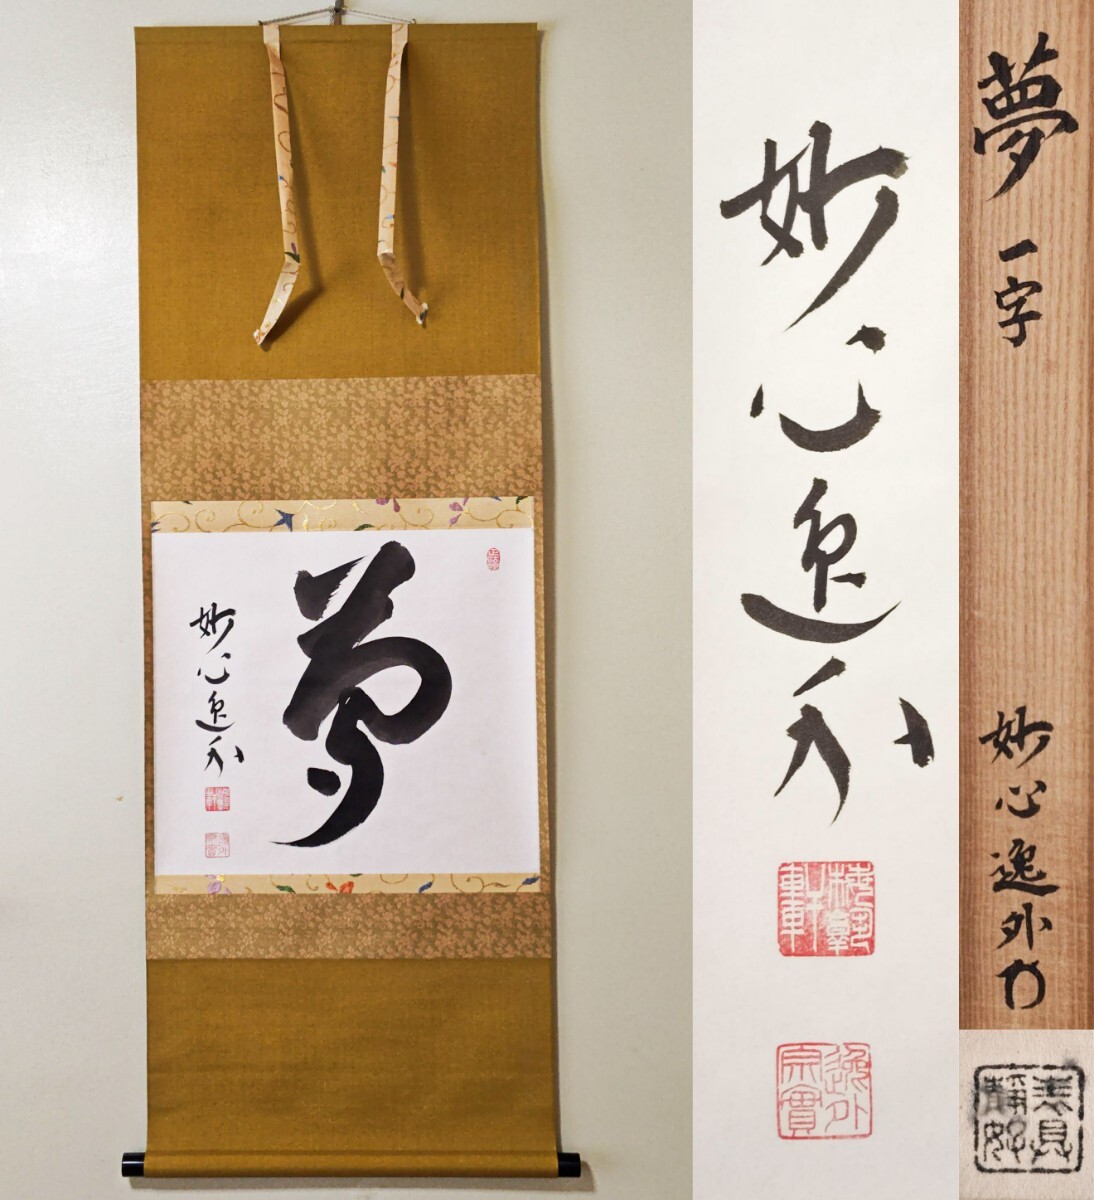 夢
妙心逸外
妙心逸外
逸外
宗實
夢
一字
妙心逸外
表具
静好